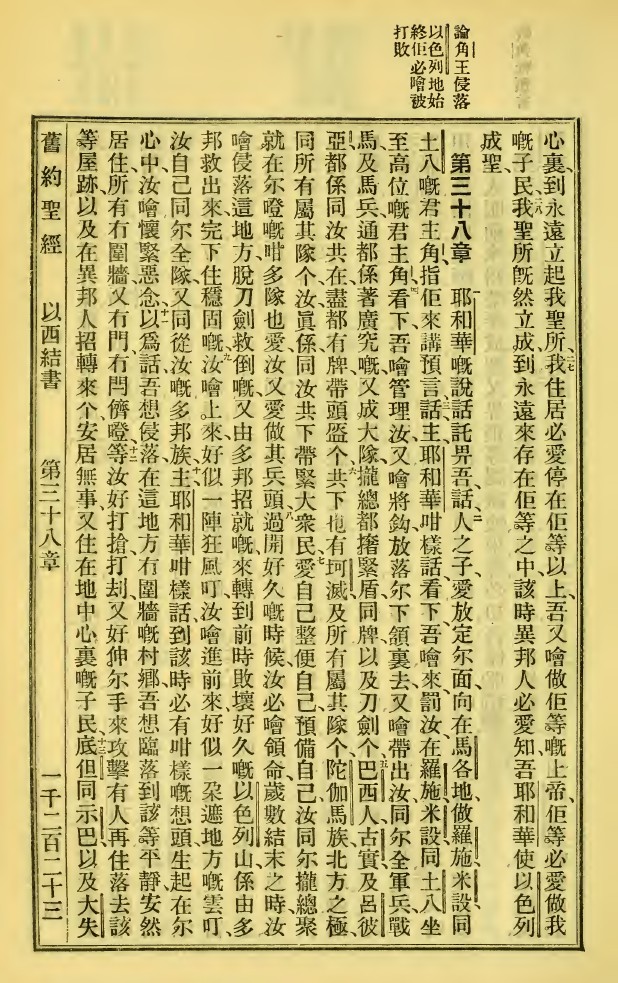 論角王侵落
以色列地始
終佢必噲被
打敗
心裏到永遠立起我聖所我住居必愛停在佢等以上吾又噲做佢等嘅上帝佢等必愛做我
嘅子民我聖所既然立成到永遠來存在佢等之中該時異邦人必愛知吾耶和華使以色列
成聖
第三十八章 耶和華嘅說話託畀吾話人之子愛放定尔面向在馬各地做羅施米設同
土八嘅君主角指佢來講預言話主耶和華咁樣話看下吾噲來罰汝在羅施米設同土八坐
至高位嘅君主角看下吾噲管理汝又噲將鈎放落尔下頷裏去又噲帶出汝同尔全軍兵戰
馬及馬兵通都係著廣完嘅又成大隊攏總都㩗緊盾同牌以及刀劍个巴西人古實及呂彼
亞都係同汝共在盡都有牌帶頭盔个共下也有坷滅及所有屬其隊个陀伽馬族北方之極
同所有屬其隊个汝眞係同汝共下帶緊大衆民愛自己整便自己預備自己汝同尔攏總聚
就在尔嶝嘅咁多隊也愛汝又愛做其兵頭過開好久嘅時候汝必噲領命歲數結末之時汝
噲侵落這地方脫刀劍救倒嘅又由多邦招就嘅來轉到前時敗壞好久嘅以色列山係由多
邦救出來完下住穩固嘅汝噲上來好似一陣狂風叮汝噲進前來好似一朶遮地方嘅雲叮
汝自己同尔全隊又同從汝嘅多邦族主耶和華咁樣話到該時必有咁樣嘅想頭生起在尔
心中汝噲懷緊惡念以爲話吾想侵落在這地方冇圍牆嘅村鄉吾想臨落到該等平靜安然
居住所有冇圍牆又冇門冇閂儕嶝等汝好打搶打刦又好伸尔手來攻擊有人再住落去該
等屋跡以及在異邦人招轉來个安居無事又住在地中心裏嘅子民底但同示巴以及大失
舊約聖經 以西結書 第三十八章 一千二百二十三